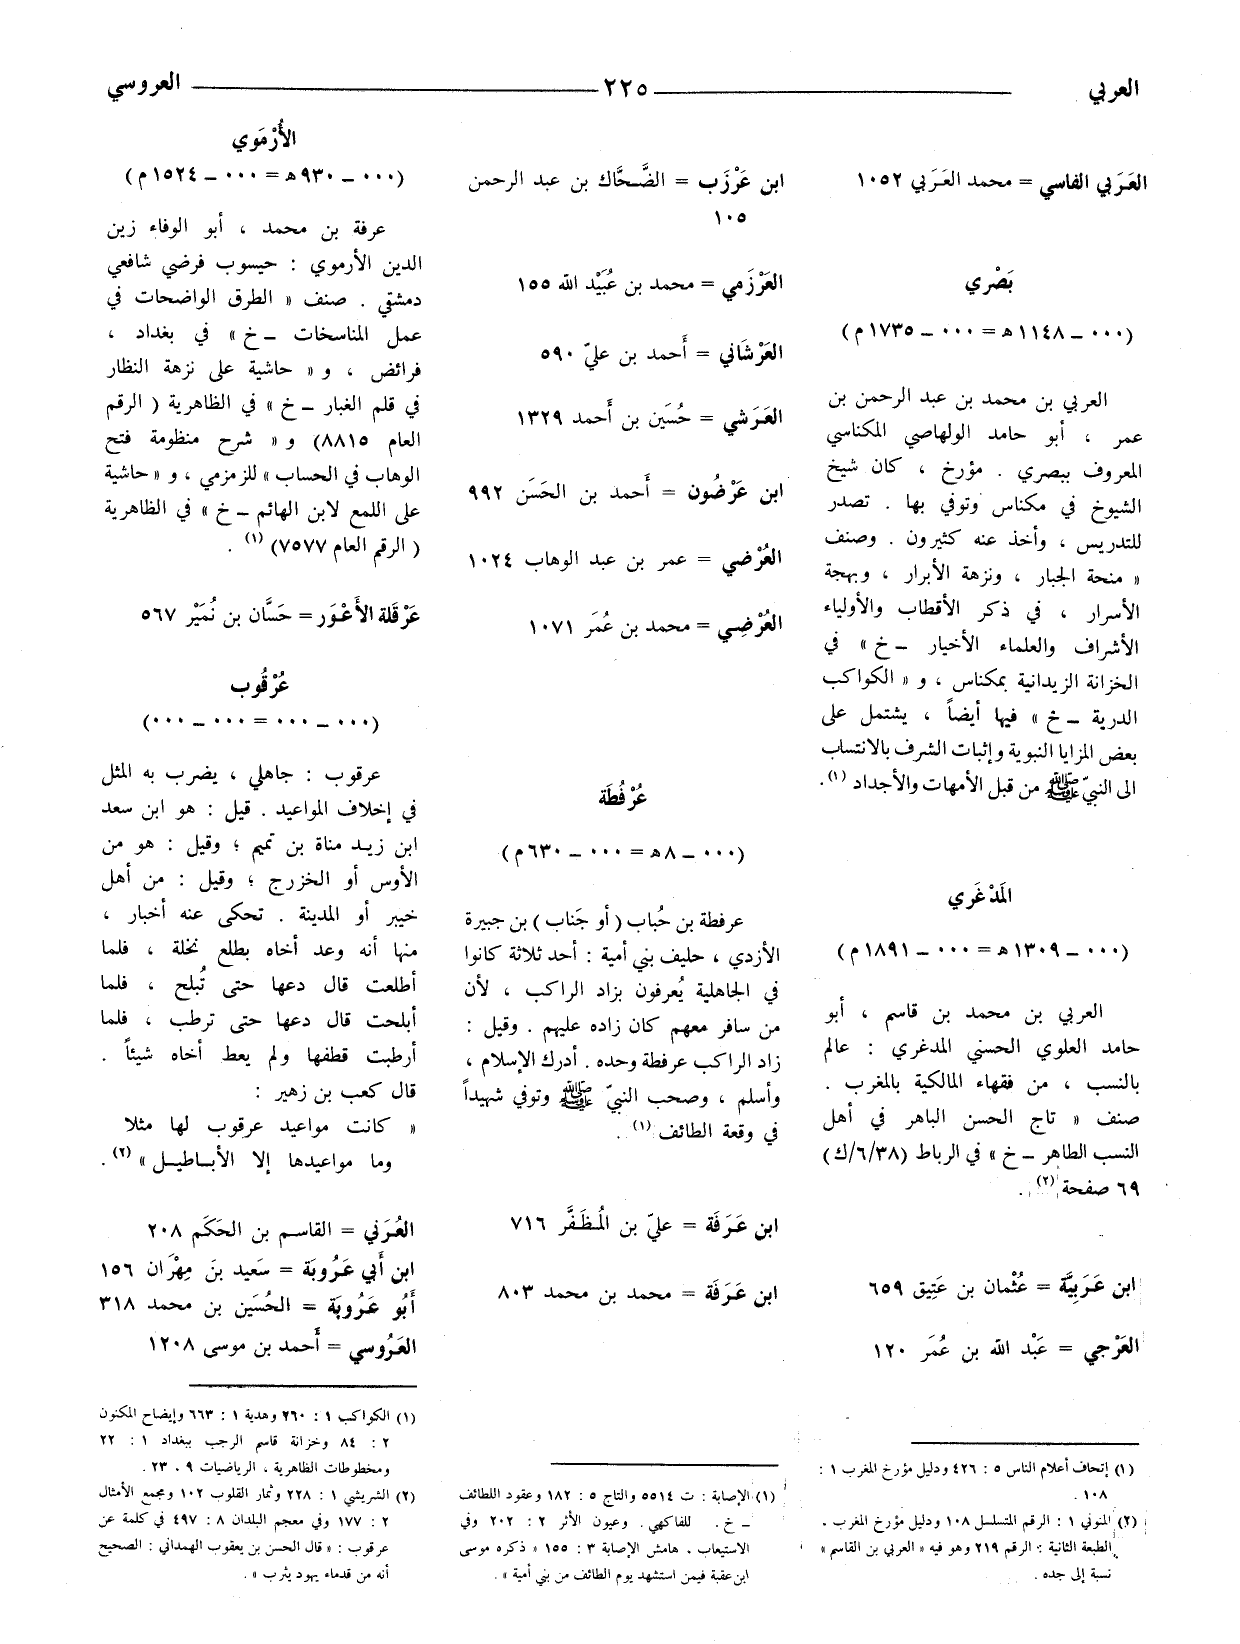 العربي ٢٢٥ العروسي
العَرَبي الفاسي = محمد العَرَبي ١٠٥٢
بَصْري
(٠٠٠ ــ ١١٤٨ ه = ٠٠٠ ــ ١٧٣٥ م)
العربي بن محمد بن عبد الرحمن بن
عمر ، أبو حامد الولهاصي المكناسي
المعروف ببصري . مؤرخ ، كان شيخ
الشيوخ في مكناس وتوفي بها . تصدر
للتدريس ، وأخذ عنه كثيرون . وصنف
« منحة الجبار ، ونزهة الأبرار ، وبهجة
الأسرار ، في ذكر الأقطاب والأولياء
الأشراف والعلماء الأخيار ــ خ » في
الخزانة الزيدانية بمكناس ، و « الكواكب
الدرية ــ خ » فيها أيضاً ، يشتمل على
بعض المزايا النبوية وإثبات الشرف بالانتساب
الى النبيّ ﷺ من قبل الأمهات والأجداد (١).
المَدْغَري
(٠٠٠ ــ ١٣٠٩ ه = ٠٠٠ ــ ١٨٩١ م)
العربي بن محمد بن قاسم ، أبو
حامد العلوي الحسني المدغري : عالم
بالنسب ، من فقهاء المالكية بالمغرب .
صنف « تاج الحسن الباهر في أهل
النسب الطاهر ــ خ » في الرباط (٦/٣٨/ك)
٦٩ صفحة (٢) .
ابن عَرَبِيَّة = عُثْمان بن عَتِيق ٦٥٩
العَرْجي = عَبْد الله بن عُمَر ١٢٠
(١) إتحاف أعلام الناس ٥ : ٤٢٦ ودليل مؤرخ المغرب ١ :
١٠٨ .
(٢) المنوني ١ : الرقم المتسلسل ١٠٨ ودليل مؤرخ المغرب ،
الطبعة الثانية : الرقم ٢١٩ وهو فيه « العربي بن القاسم »
نسبة إلى جده .
ابن عَرْزَب = الضَّحَّاك بن عبد الرحمن
١٠٥
العَرْزَمي = محمد بن عُبَيْد الله ١٥٥
العَرْشَاني = أَحمد بن عليّ ٥٩٠
العَرَشي = حُسَين بن أَحمد ١٣٢٩
ابن عَرْضُون = أَحمد بن الحَسَن ٩٩٢
العُرْضي = عمر بن عبد الوهاب ١٠٢٤
العُرْضِي = محمد بن عُمَر ١٠٧١
عُرْفُطَة
(٠٠٠ ــ ٨ ه = ٠٠٠ ــ ٦٣٠ م)
عرفطة بن حُباب ( أو جَناب ) بن جبيرة
الأزدي ، حليف بني أمية : أحد ثلاثة كانوا
في الجاهلية يُعرفون بزاد الراكب ، لأن
من سافر معهم كان زاده عليهم . وقيل :
زاد الراكب عرفطة وحده . أدرك الإسلام ،
وأسلم ، وصحب النبيّ ﷺ وتوفي شهيداً
في وقعة الطائف (١) .
ابن عَرَفَة = عليّ بن المُظَفَّر ٧١٦
ابن عَرَفَة = محمد بن محمد ٨٠٣
(١) الإصابة : ت ٥٥١٤ والتاج ٥ : ١٨٢ وعقود اللطائف
ــ خ . للفاكهي . وعيون الأثر ٢ : ٢٠٢ وفي
الاستيعاب ، هامش الإصابة ٣ : ١٥٥ « ذكره موسى
ابن عقبة فيمن استشهد يوم الطائف من بني أمية » .
الأُرْمَوي
(٠٠٠ ــ ٩٣٠ ه = ٠٠٠ ــ ١٥٢٤ م)
عرفة بن محمد ، أبو الوفاء زين
الدين الأرموي : حيسوب فرضي شافعي
دمشقي . صنف « الطرق الواضحات في
عمل المناسخات ــ خ » في بغداد ،
فرائض ، و « حاشية على نزهة النظار
في قلم الغبار ــ خ » في الظاهرية ( الرقم
العام ٨٨١٥) و « شرح منظومة فتح
الوهاب في الحساب » للزمزمي ، و « حاشية
على اللمع لابن الهائم ــ خ » في الظاهرية
( الرقم العام ٧٥٧٧) (١) .
عَرْقَلة الأَعْوَر = حَسَّان بن نُمَيْر ٥٦٧
عُرْقُوب
(٠٠٠ ــ ٠٠٠ = ٠٠٠ ــ ٠٠٠)
عرقوب : جاهلي ، يضرب به المثل
في إخلاف المواعيد . قيل : هو ابن سعد
ابن زيد مناة بن تميم ؛ وقيل : هو من
الأوس أو الخزرج ؛ وقيل : من أهل
خيبر أو المدينة . تحكى عنه أخبار ،
منها أنه وعد أخاه بطلع نخلة ، فلما
أطلعت قال دعها حتى تُبلح ، فلما
أبلحت قال دعها حتى ترطب ، فلما
أرطبت قطفها ولم يعط أخاه شيئاً .
قال كعب بن زهير :
« كانت مواعيد عرقوب لها مثلا
وما مواعيدها إلا الأباطيل » (٢) .
العُرَني = القاسم بن الحَكَم ٢٠٨
ابن أَبي عَرُوبَة = سَعِيد بنَ مِهْرَان ١٥٦
أَبُو عَرُوبَة = الحُسَين بن محمد ٣١٨
العَرُوسي = أَحمد بن موسى ١٢٠٨
(١) الكواكب ١ : ٢٦٠ وهدية ١ : ٦٦٣ وإيضاح المكنون
٢ : ٨٤ وخزانة قاسم الرجب ببغداد ١ : ٢٢
ومخطوطات الظاهرية ، الرياضيات ٩ ، ٢٣ .
(٢) الشريشي ١ : ٢٢٨ وثمار القلوب ١٠٢ ومجمع الأمثال
٢ : ١٧٧ وفي معجم البلدان ٨ : ٤٩٧ في كلمة عن
عرقوب : « قال الحسن بن يعقوب الهمداني : الصحيح
أنه من قدماء يهود يثرب » .